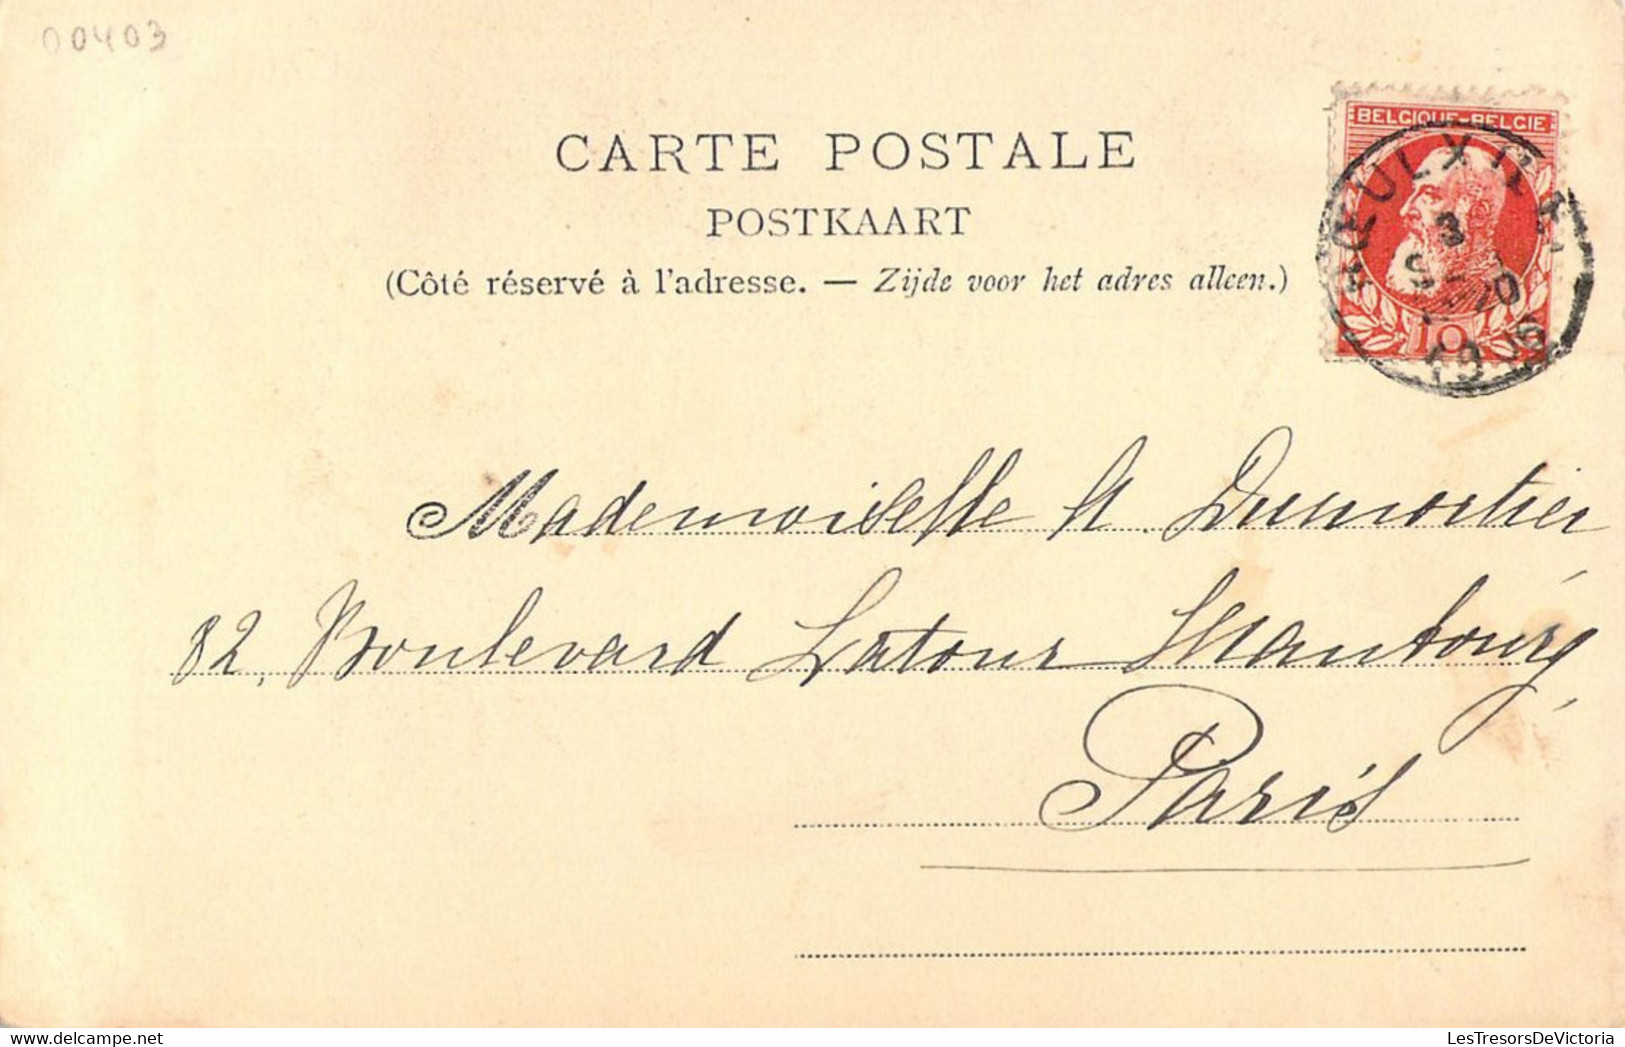 00403
CARTE POSTALE
POSTKAART
(Côté réservé à l'adresse. — Zijde voor het adres alleen.)
BELGIQUE-BELGIE
3
10
Mademoiselle A. Dumortier
82, Boulevard Latour Maubourg,
Paris
LesTresorsDeVictoria